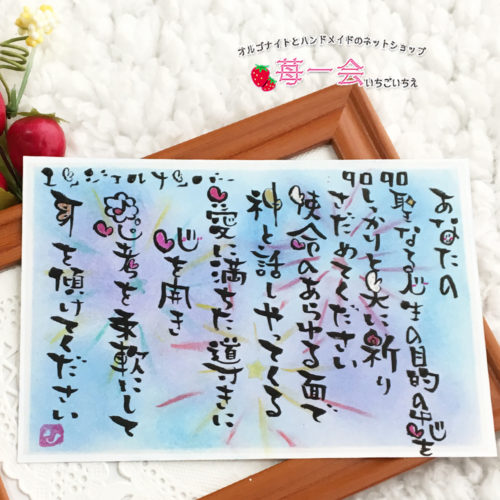 オルゴナイトとハンドメイドのネットショップ
苺一会
いちごいちえ
エンジェルナンバー 9090
あなたの
聖なる人生の目的の中心を
しっかりと天に祈り
さだめてください
使命のあらゆる面で
神と話しやってくる
愛に満ちた導きに
心を開き
思考を柔軟にして
耳を傾けてください